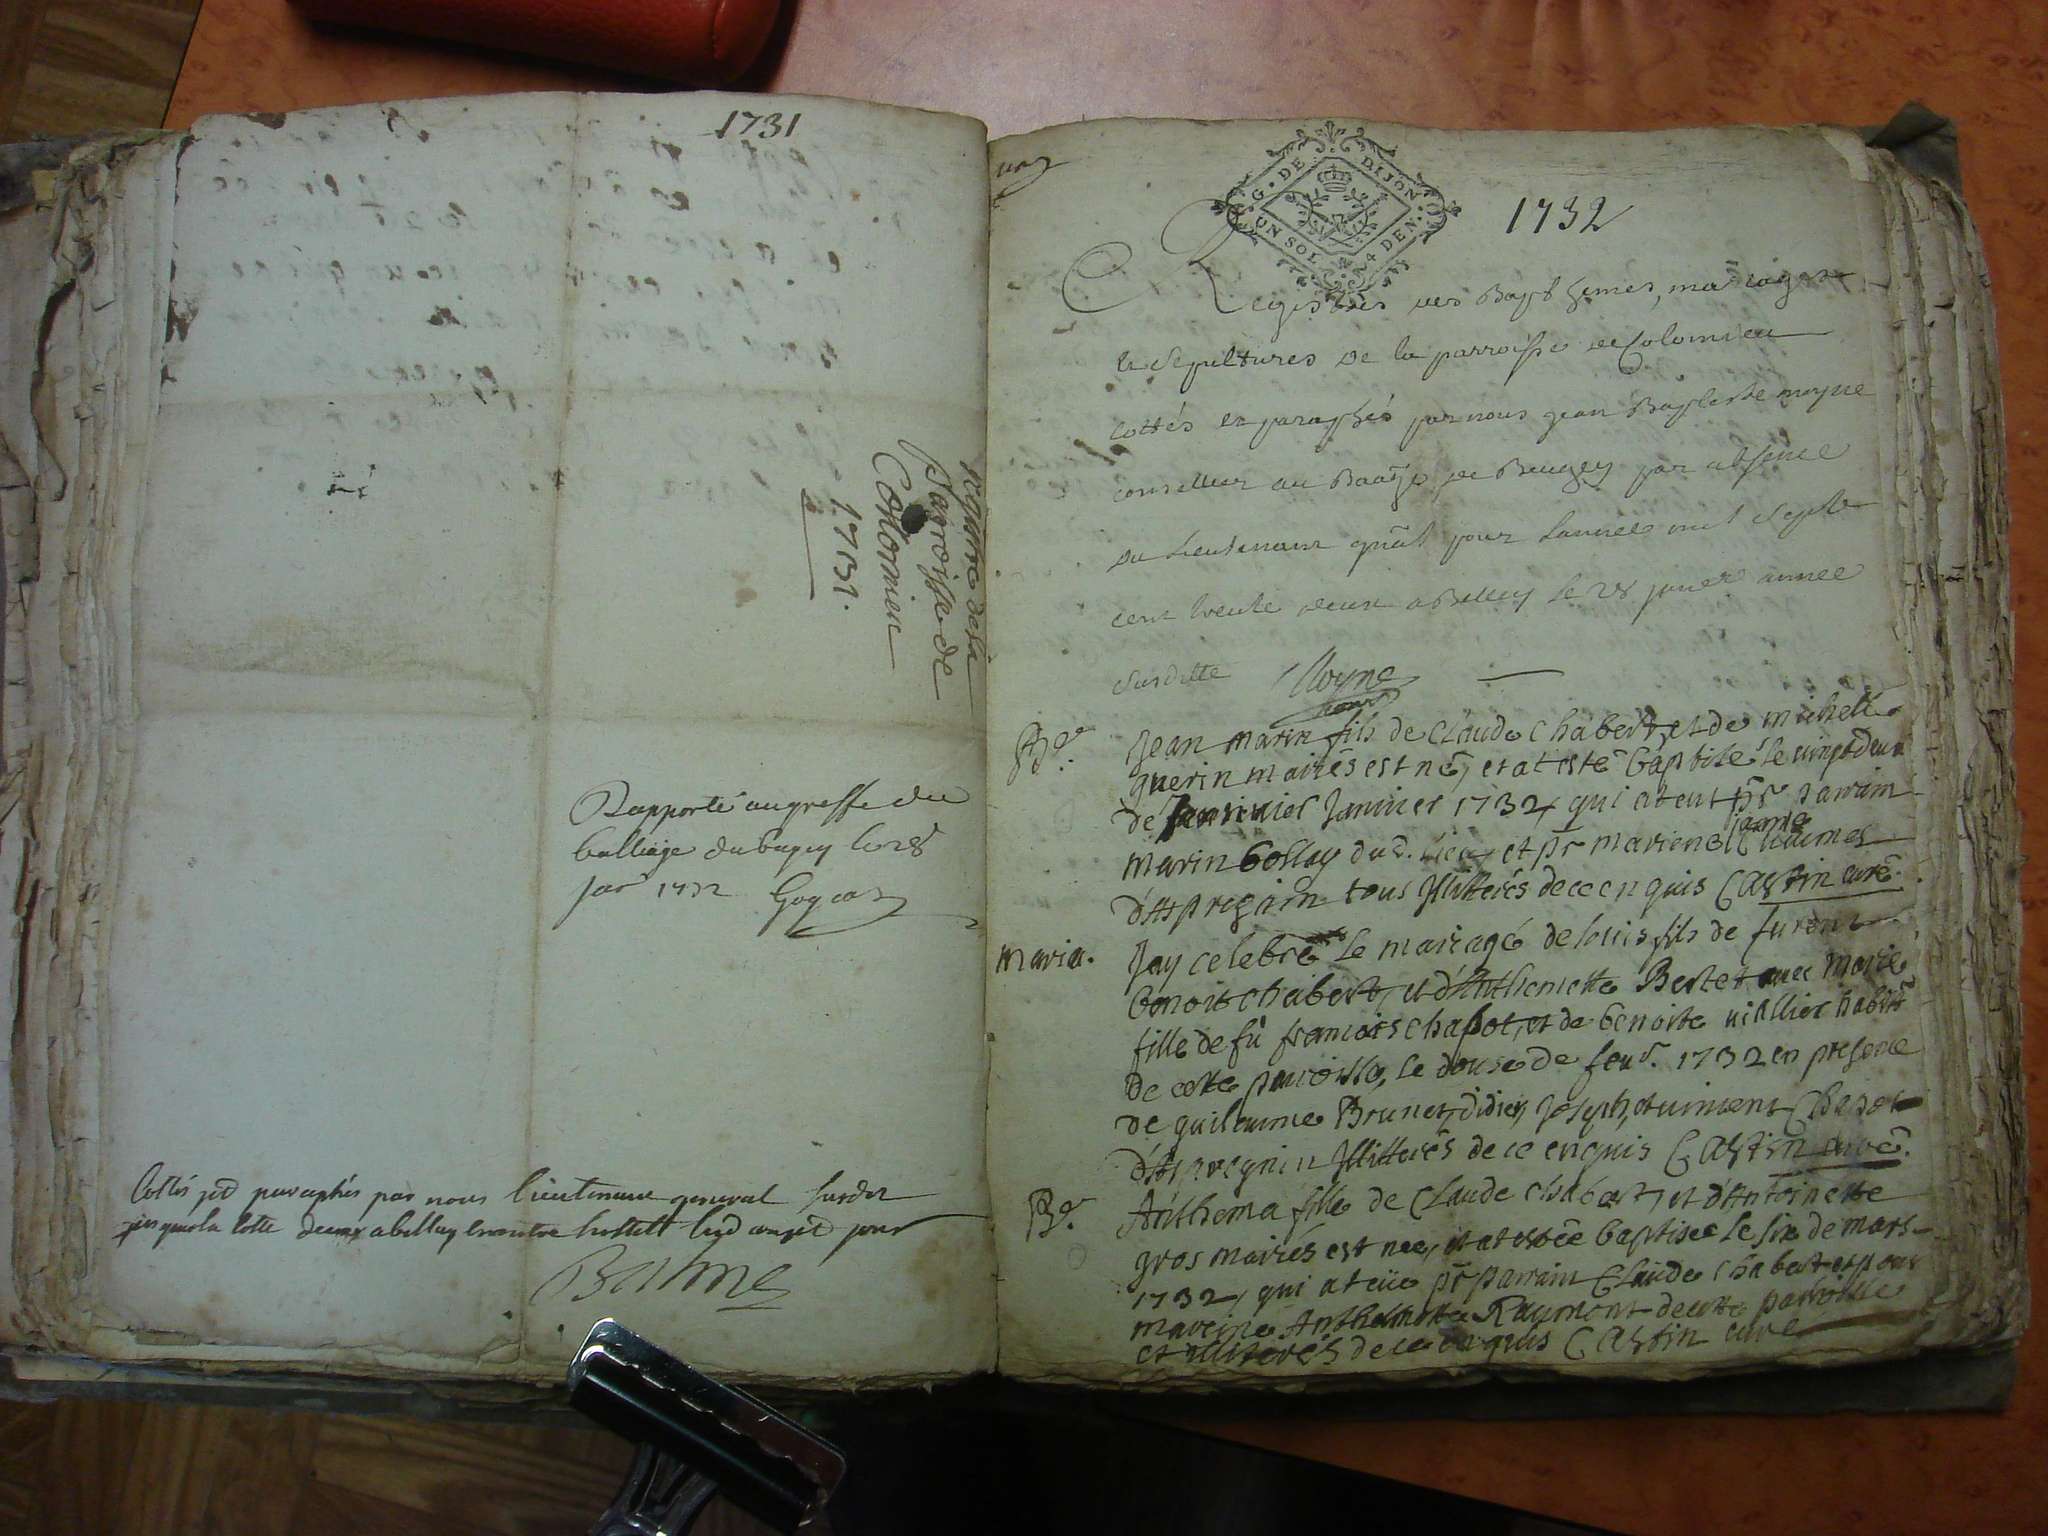 1731
Registre de la
Parroisse de
Collomieu
1731.
Rapporté au greffe du
balliage du bugey le 28
jar 1732
Cottés et paraphés par nous lieutenant general susdit
jusques la cotte
Balme
G. DE DIJON
UN SOL 4 DEN.
1732
Registres des Bapthemes, mariages
le sepultures de la parroisse de Colomieu
cottés et paraphés par nous Jean Baptiste moyne
conseiller au Baage de Beugey par absence
du Lieutenant gnãl pour Lannee mil Sept
cent trente deux a Belley le 28 janer annee
susditte Moyne
Be. Jean marin fils de Claude Chabert, et de michelle
guerin mariés est né, et at esté baptisé le vingtdeux
de Janvier 1732, qui at eut pr parrain
marin bollay dud. lieu, et pr mariene
d'Aspregnin tous Illitterés de ce enquis Castin curé.
Maria. J'ay celebré le mariagé de louis fils de fu
benoit chabert, et d'Anthemette Bertet avec marie
fille de fû francois chapot, et de benoite viallier habit
de cette parroisse, le douse de feur. 1732 en presence
de guilaume Brunet, didier, Joseph, et vincent Chapot
d'Aspregnin Illitterés de ce enquis Castin curé.
Be. Anthema fille de Claude chabert, et d'Antoinette
gros mariés est nee, et at estée baptisée le six de mars
1732, qui at eüe pr parrain Claude chabert et pour
mareine Anthelmette Raymont de cette parroisse
et illiterés de ce enquis Castin curé